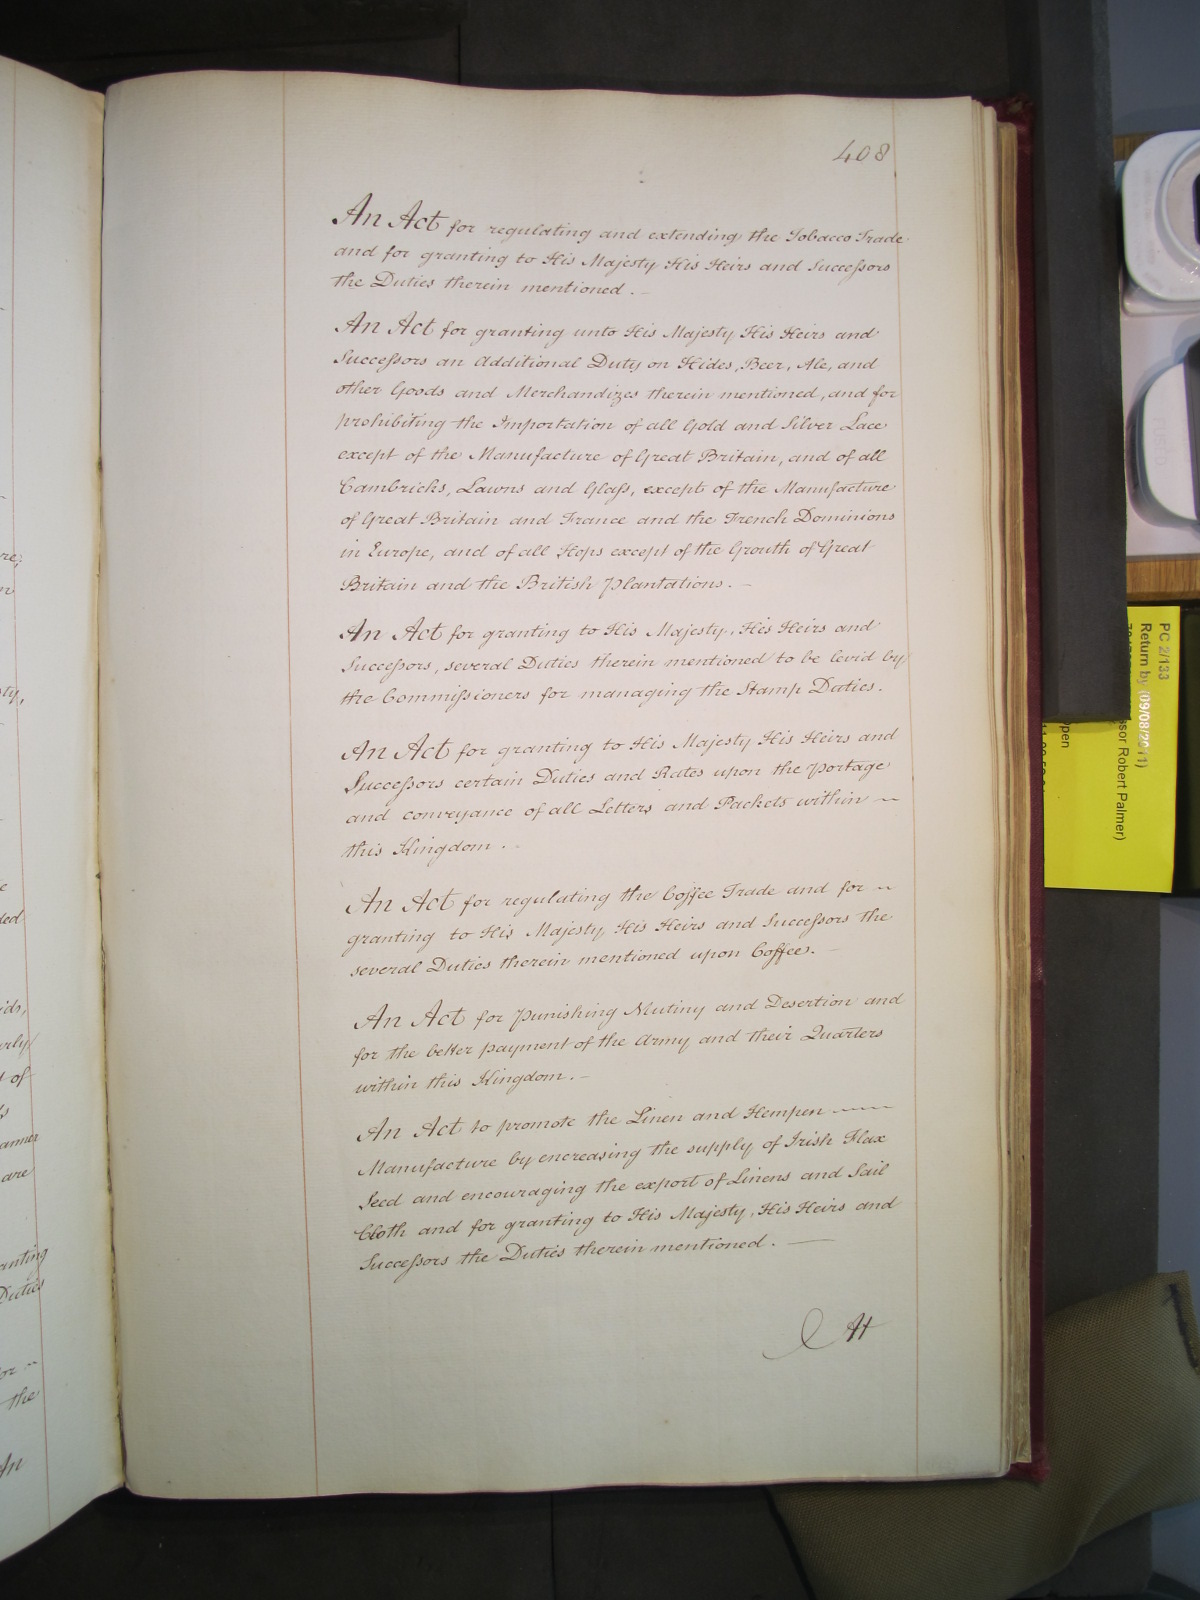 408
An Act for regulating and extending the Tobacco Trade
and for granting to His Majesty His Heirs and Successors
the Duties therein mentioned. —
An Act for granting unto His Majesty His Heirs and
Successors an Additional Duty on Hides, Beer, Ale, and
other Goods and Merchandizes therein mentioned, and for
prohibiting the Importation of all Gold and Silver Lace
except of the Manufacture of Great Britain, and of all
Cambricks, Lawns and Glass, except of the Manufacture
of Great Britain and France and the French Dominions
in Europe, and of all Hops except of the Growth of Great
Britain and the British Plantations. —
An Act for granting to His Majesty, His Heirs and
Successors, several Duties therein mentioned to be levid by
the Commissioners for managing the Stamp Duties.
An Act for granting to His Majesty His Heirs and
Successors certain Duties and Rates upon the portage
and conveyance of all Letters and Packets within —
this Kingdom.
An Act for regulating the Coffee Trade and for —
granting to His Majesty, His Heirs and Successors the
several Duties therein mentioned upon Coffee. —
An Act for punishing Mutiny and Desertion and
for the better payment of the Army and their Quarters
within this Kingdom. —
An Act to promote the Linen and Hempen —
Manufacture by encreasing the supply of Irish Flax
Seed and encouraging the export of Linens and Sail
Cloth and for granting to His Majesty, His Heirs and
Successors the Duties therein mentioned. —
PC 2/133
Return by (09/08/2011)
ssor Robert Palmer)